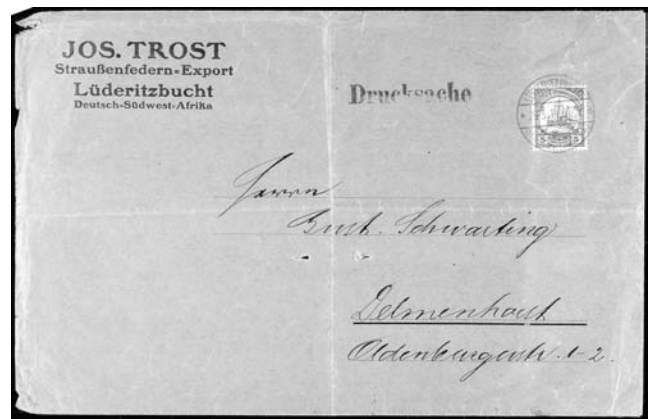 JOS. TROST
Straußenfedern=Export
Lüderitzbucht
Deutsch=Südwest=Afrika
Drucksache
5 5
Herrn
Gust. Schwarting
Delmenhorst
Oldenburgerstr. 1-2.